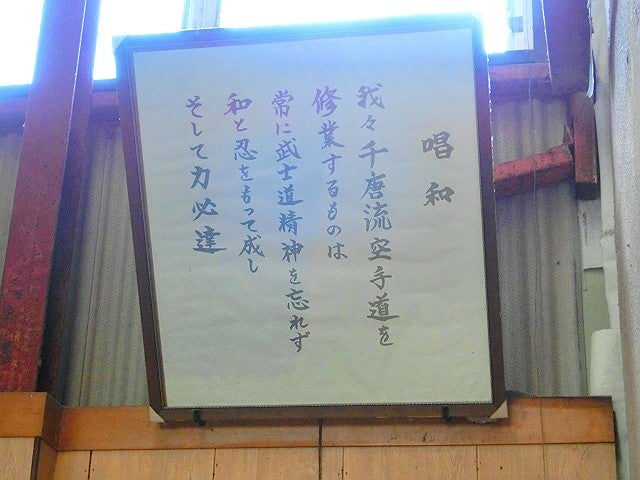 唱和
我々千唐流空手道を
修業するものは
常に武士道精神を忘れず
和と忍をもって成し
そして力必達